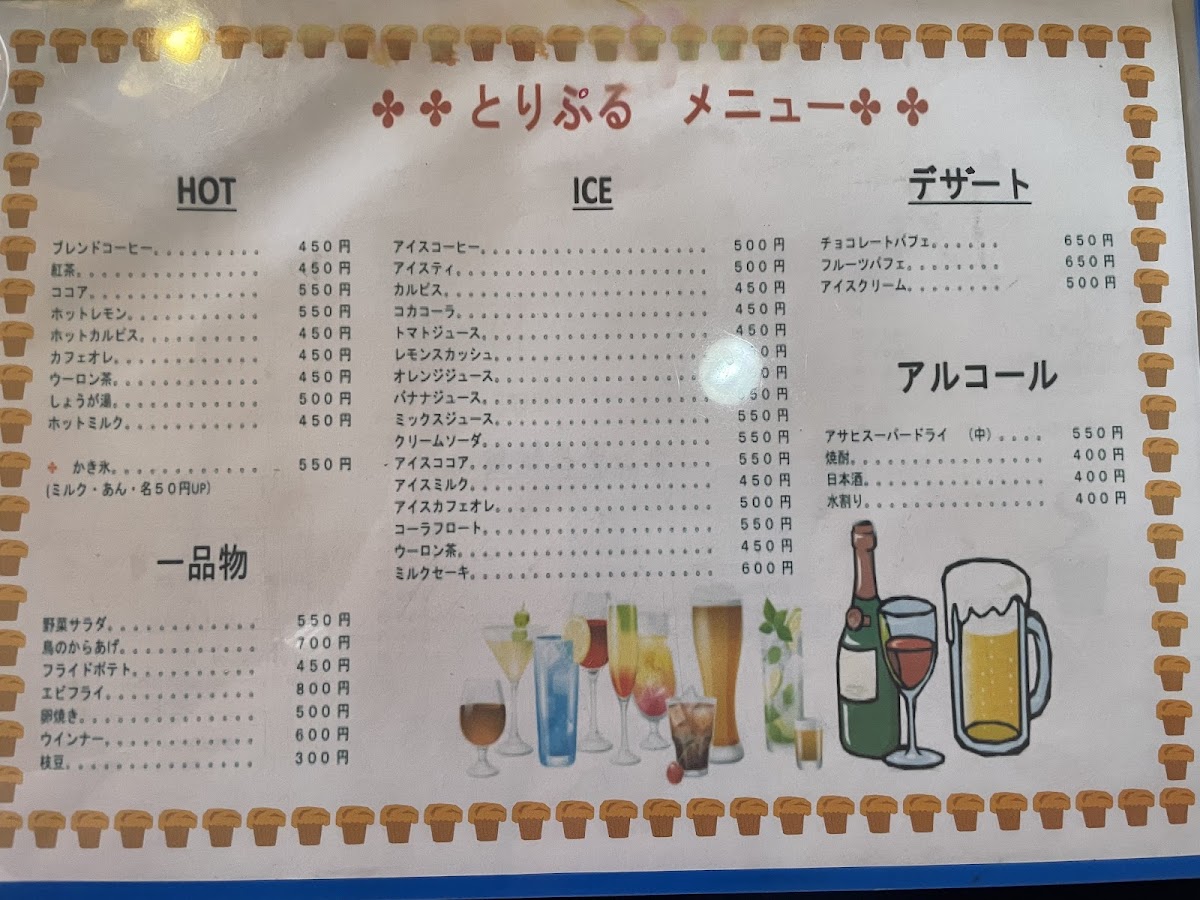 ✤ ✤ とりぷる メニュー ✤ ✤
HOT
ブレンドコーヒー。。。。。。。。。。 450円
紅茶。。。。。。。。。。。。。。。。。 450円
ココア。。。。。。。。。。。。。。。。 550円
ホットレモン。。。。。。。。。。。。 550円
ホットカルピス。。。。。。。。。。。 450円
カフェオレ。。。。。。。。。。。。。 450円
ウーロン茶。。。。。。。。。。。。。 450円
しょうが湯。。。。。。。。。。。。。 500円
ホットミルク。。。。。。。。。。。。 450円
✤ かき氷。。。。。。。。。。。。。。 550円
(ミルク・あん・名50円UP)
一品物
野菜サラダ。。。。。。。。。。。。。 550円
鳥のからあげ。。。。。。。。。。。。 700円
フライドポテト。。。。。。。。。。。 450円
エビフライ。。。。。。。。。。。。。 800円
卵焼き。。。。。。。。。。。。。。。 500円
ウインナー。。。。。。。。。。。。。 600円
枝豆。。。。。。。。。。。。。。。。 300円
ICE
アイスコーヒー。。。。。。。。。。。。。。。。。 500円
アイスティ。。。。。。。。。。。。。。。。。。。 500円
カルピス。。。。。。。。。。。。。。。。。。。。 450円
コカコーラ。。。。。。。。。。。。。。。。。。。 450円
トマトジュース。。。。。。。。。。。。。。。。。 450円
レモンスカッシュ。。。。。。。。。。。。。。。。 円
オレンジジュース。。。。。。。。。。。。。。。。 円
バナナジュース。。。。。。。。。。。。。。。。。 円
ミックスジュース。。。。。。。。。。。。。。。。 550円
クリームソーダ。。。。。。。。。。。。。。。。。 550円
アイスココア。。。。。。。。。。。。。。。。。。 550円
アイスミルク。。。。。。。。。。。。。。。。。。 450円
アイスカフェオレ。。。。。。。。。。。。。。。。 500円
コーラフロート。。。。。。。。。。。。。。。。。 550円
ウーロン茶。。。。。。。。。。。。。。。。。。。 450円
ミルクセーキ。。。。。。。。。。。。。。。。。。 600円
デザート
チョコレートパフェ。。。。。。 650円
フルーツパフェ。。。。。。。。 650円
アイスクリーム。。。。。。。。 500円
アルコール
アサヒスーパードライ (中)。。。。 550円
焼酎。。。。。。。。。。。。。。。 400円
日本酒。。。。。。。。。。。。。。 400円
水割り。。。。。。。。。。。。。。 400円